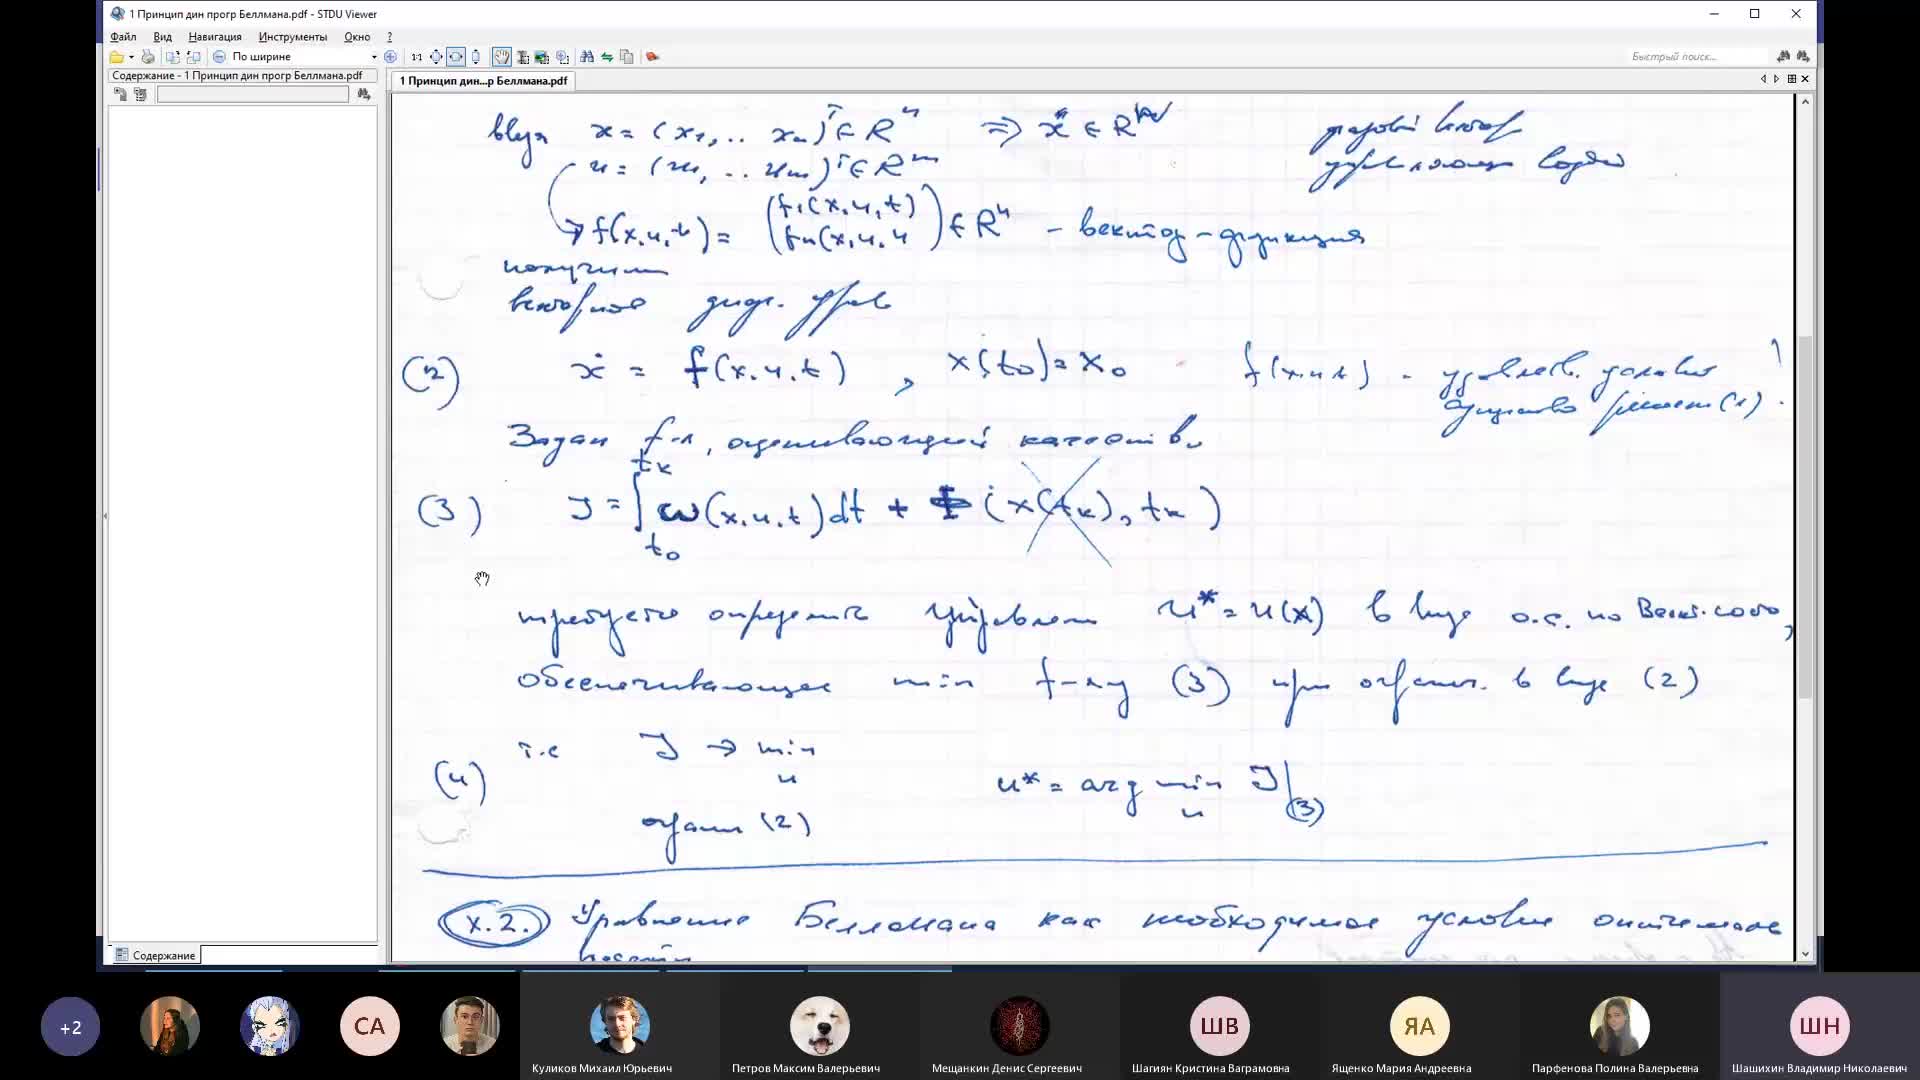 1 Принцип дин прогр Беллмана.pdf - STDU Viewer
Файл Вид Навигация Инструменты Окно ?
По ширине 1:1 Быстрый поиск...
Содержание - 1 Принцип дин прогр Беллмана.pdf
1 Принцип дин...р Беллмана.pdf
введя x = (x₁, .. xₙ)ᵀ ∈ Rⁿ ⇒ ẋ ∈ Rⁿ фазовый вектор
u = (u₁, .. uₘ)ᵀ ∈ Rᵐ
f(x,u,t) = (f₁(x,u,t) fₙ(x,u,t)) ∈ Rⁿ - вектор-функция
получим
векторное дифф. урав
(2) ẋ = f(x,u,t), x(t₀) = x₀ f(x,u,t) - удовлетв. условия
Задан f-л, оценивающий качество
(3) J = ∫ ω(x,u,t)dt + Φ(x(tₖ), tₖ)
tₖ
t₀
требуется определить управлен u* = u(x) в виде о.с. по Вект. сост,
обеспечивающее min f-лу (3) при огранич. в виде (2)
т.е J → min
u
(4) u* = arg min J|(3)
u
огран (2)
X.2. Уравнение Беллмана как необходимое условие оптималь
ности
Содержание
+2
СА
ШВ
ЯА
ШН
Куликов Михаил Юрьевич
Петров Максим Валерьевич
Мещанкин Денис Сергеевич
Шагиян Кристина Ваграмовна
Ященко Мария Андреевна
Парфенова Полина Валерьевна
Шашихин Владимир Николаевич